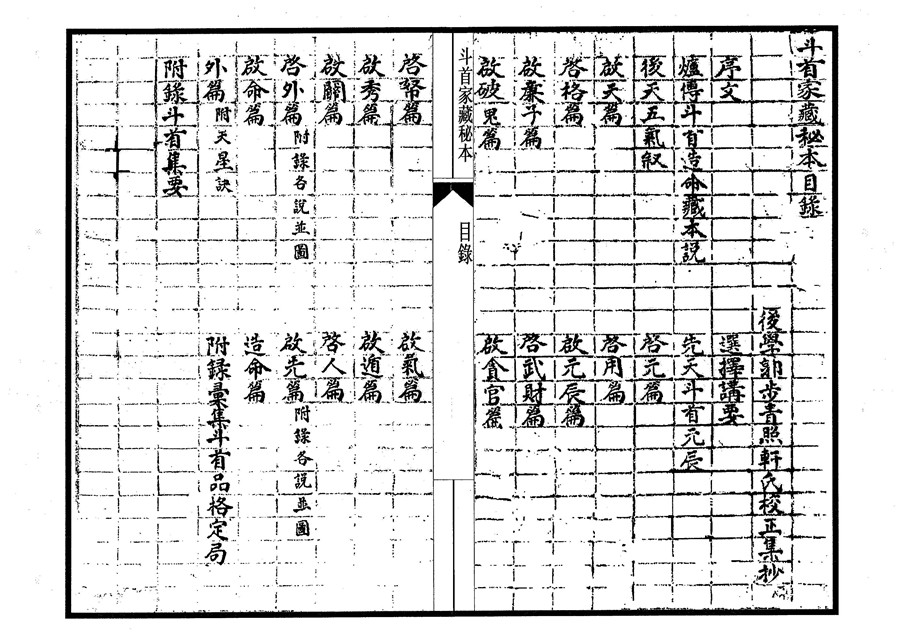 斗首家藏秘本目錄
後學郭步青照軒氏校正集抄
序文
選擇講要
爐傳斗首造命藏本說
先天斗首元辰
後天五氣敘
啓元篇
啟天篇
啓用篇
啓格篇
啟元辰篇
啟廉子篇
啓武財篇
啟破鬼篇
啟貪官篇
斗首家藏秘本
目錄
啓幣篇
啟氣篇
啟秀篇
啟遁篇
啟關篇
啓人篇
啓外篇 附錄各說並圖
啟先篇 附錄各說並圖
啟命篇
造命篇
外篇 附天星訣
附錄彙集斗首品格定局
附錄斗首集要